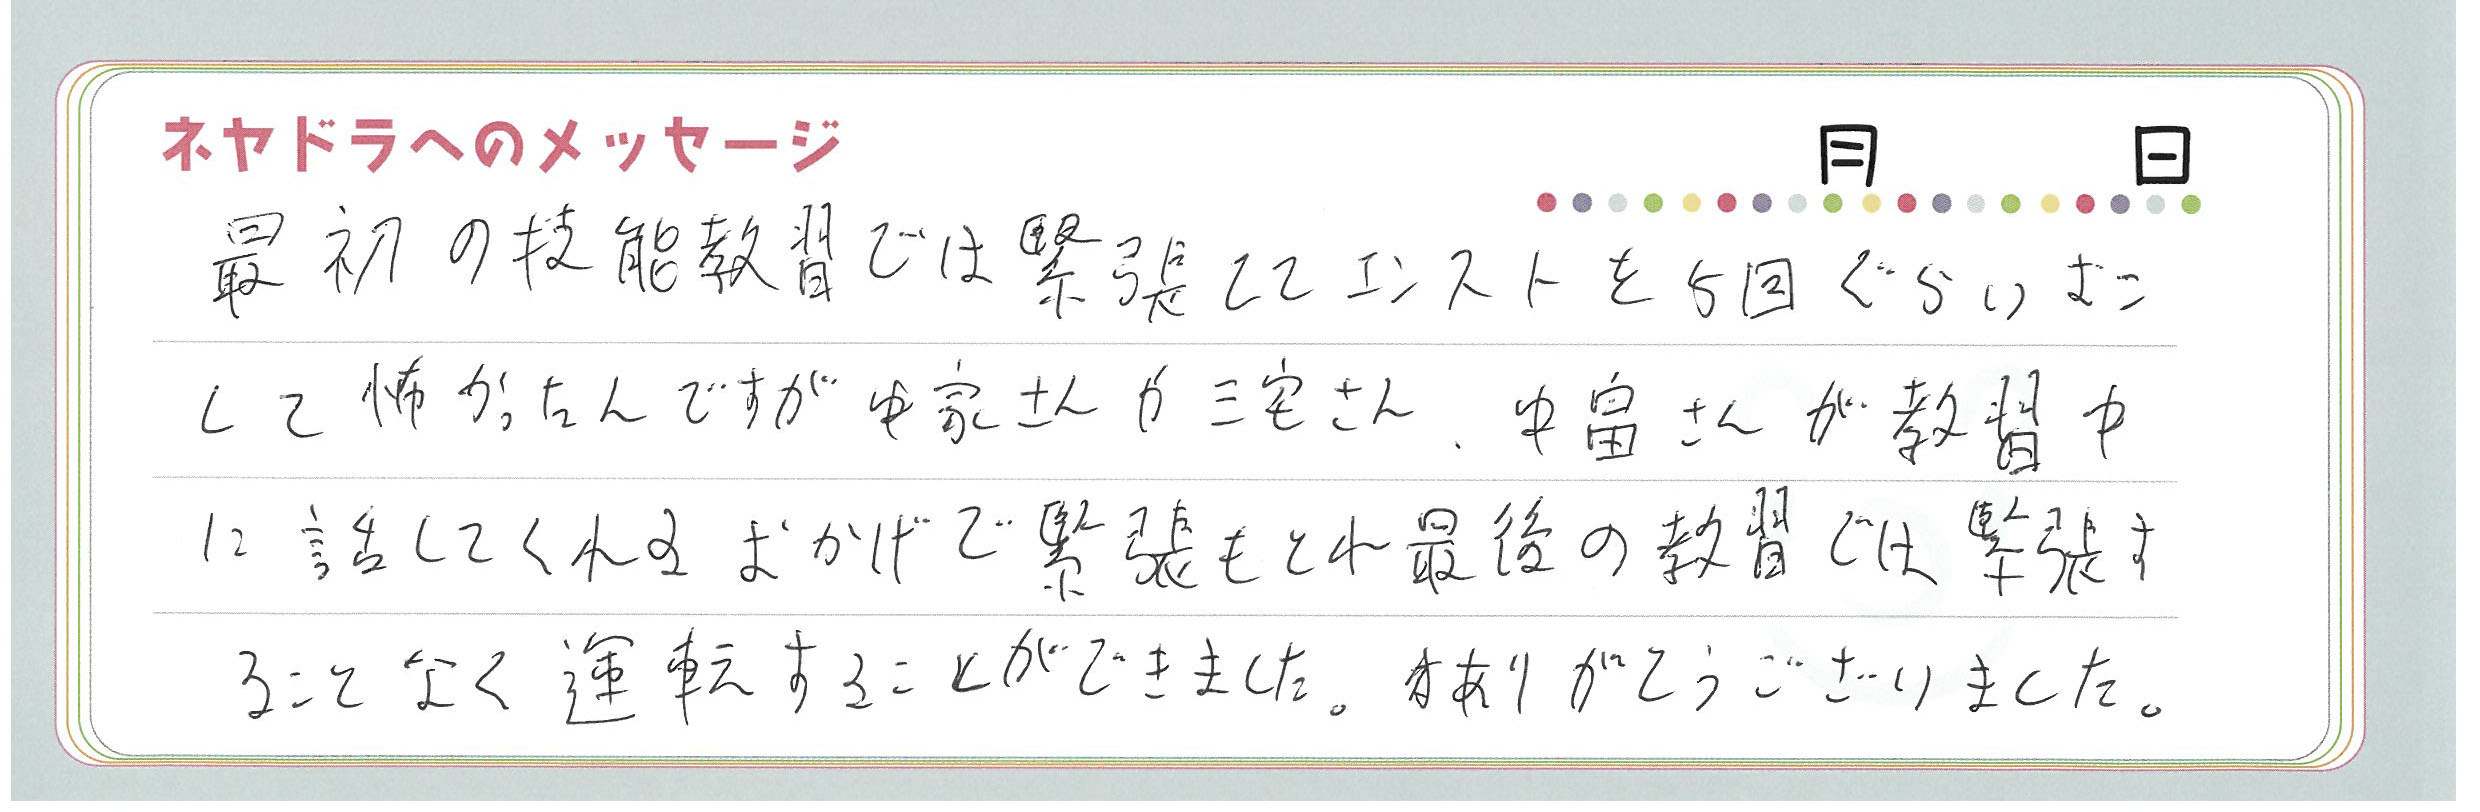 ネヤドラへのメッセージ
月 日
最初の技能教習では緊張しててエンストを5回ぐらいおこ
して怖かったんですが中家さんか三宅さん、中畠さんが教習中
に話してくれるおかげで緊張もとれ最後の教習では緊張す
ることなく運転することができました。ありがとうございました。